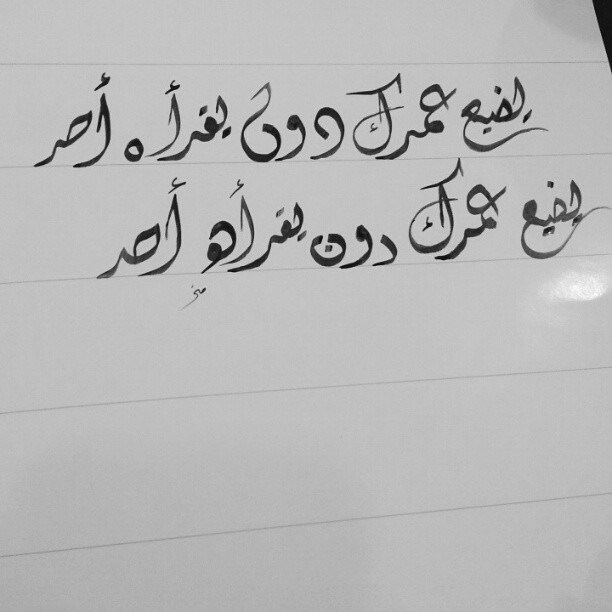 يضيع عمرك دون يقرأه أحد
يضيع عمرك دون يقرأه أحد